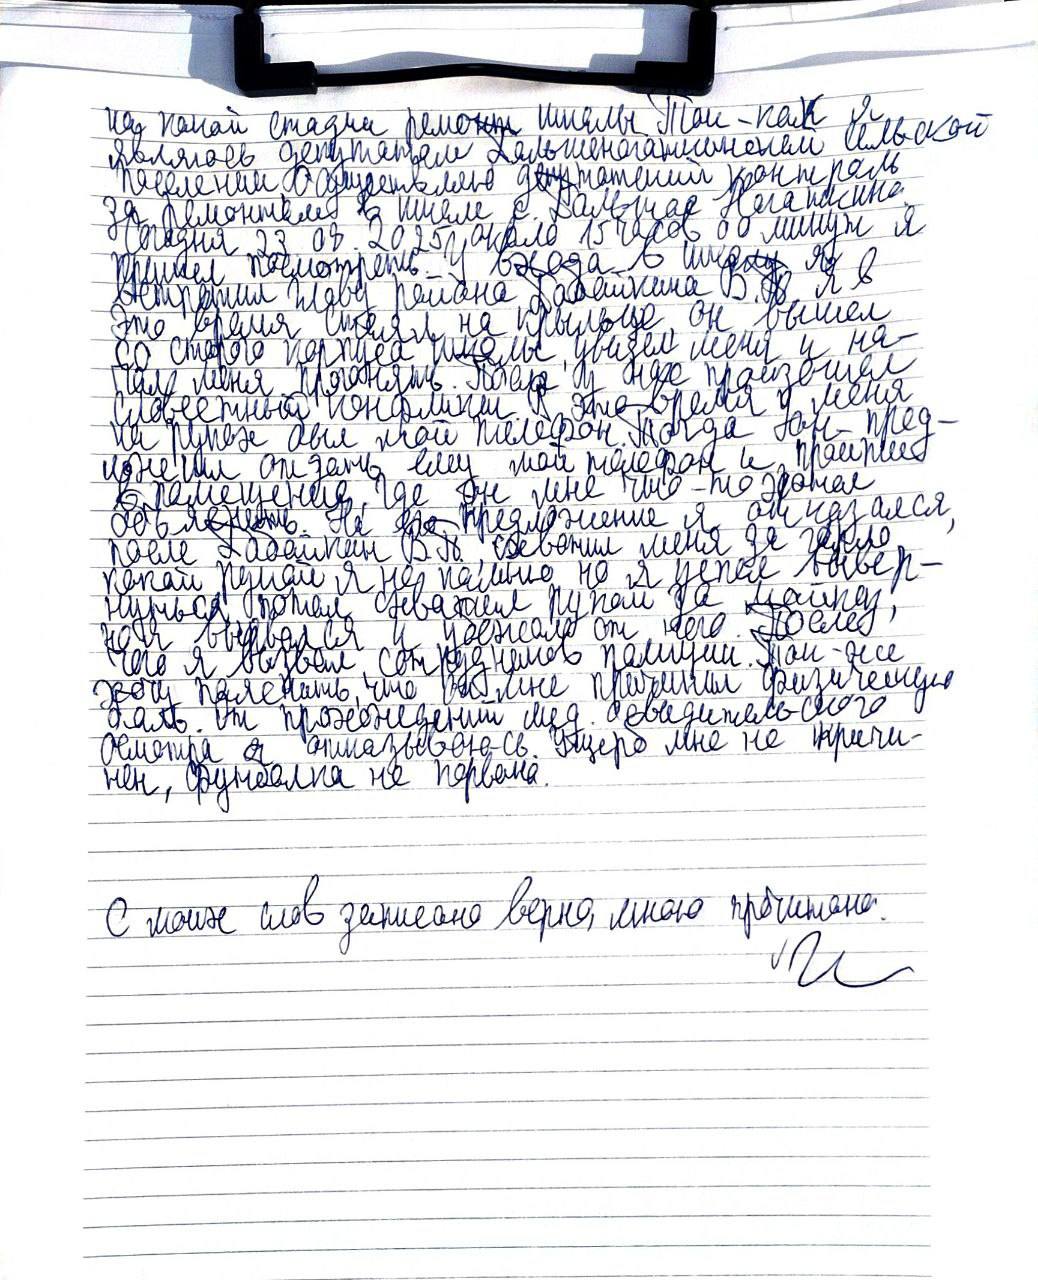 на какой стадии ремонт школы. Так-как я
являюсь депутатом Большенагаткинском сельской
поселении осуществляю депутатский контроль
за ремонтом в школе с. Большое Нагаткино.
Сегодня 23.08.2025г. около 15 часов 00 минут я
пришел посмотреть. У входа в школу я
встретил главу района В. Я в
это время стоял на крыльце он вышел
со старого корпуса школы, увидел меня и на-
чал меня прогонять. Тогда у нас произошел
словестный конфликт. В это время у меня
на руках был мой телефон. Тогда он пред-
ложил отдать ему мой телефон и пройти
в помещение, где он мне что-то хотел
объяснить. На его предложение я отказался,
после В схватил меня за горло,
какой рукой я не помню но я успел вывер-
нуться, потом схватил рукой за майку,
но я вырвался и убежал от него. После
чего я вызвал сотрудников полиции. Так-же
хочу пояснить, что он мне причинил физическую
боль. От прохождений мед. освидетельского
осмотра я отказываюсь. Ущерб мне не причи-
нен, футболка не порвана.
С моих слов записано верно, мною прочитано.